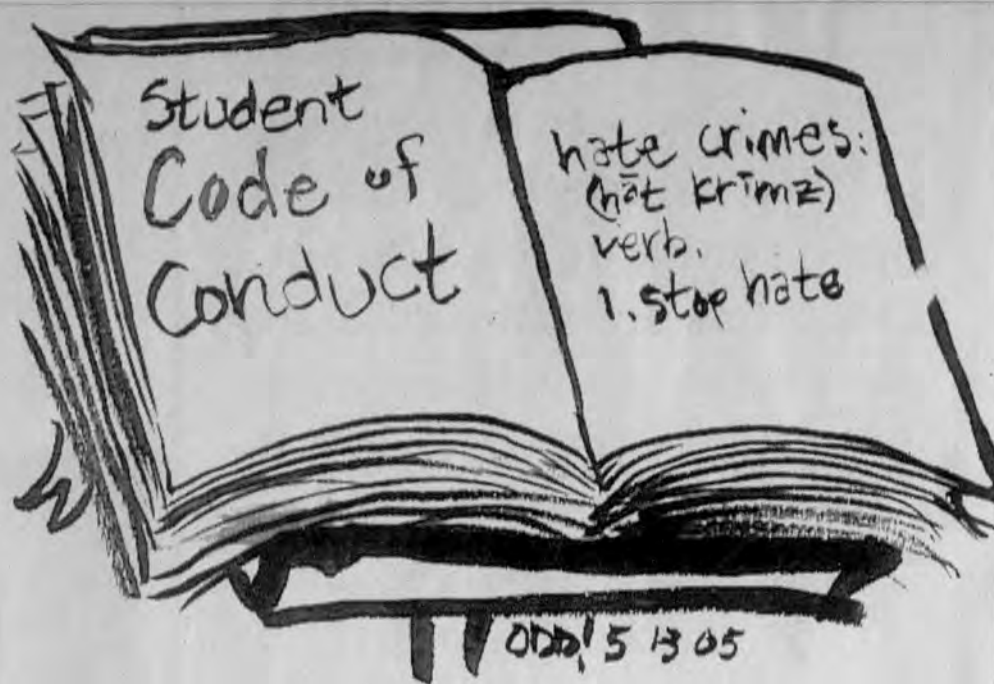 Student
Code of
Conduct
hate crimes:
(hāt krīmz)
verb.
1. stop hate
ODD! 5 13 05